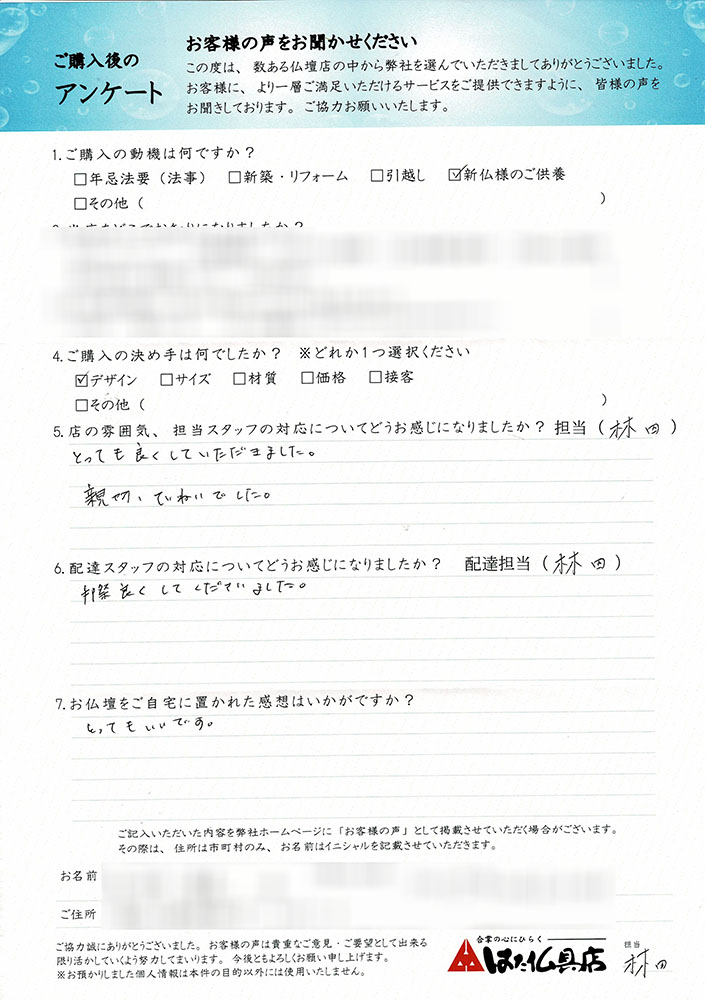 ご購入後の
アンケート
お客様の声をお聞かせください
この度は、数ある仏壇店の中から弊社を選んでいただきましてありがとうございました。
お客様に、より一層ご満足いただけるサービスをご提供できますように、皆様の声を
お聞きしております。ご協力お願いいたします。
1.ご購入の動機は何ですか？
□年忌法要（法事） □新築・リフォーム □引越し ☑新仏様のご供養
□その他（ ）
4.ご購入の決め手は何でしたか？ ※どれか1つ選択ください
☑デザイン □サイズ □材質 □価格 □接客
□その他（ ）
5.店の雰囲気、担当スタッフの対応についてどうお感じになりましたか？担当（林田）
とっても良くしていただきました。
親切、ていねいでした。
6.配達スタッフの対応についてどうお感じになりましたか？ 配達担当（林田）
手際良くしてくださいました。
7.お仏壇をご自宅に置かれた感想はいかがですか？
とってもいいです。
ご記入いただいた内容を弊社ホームページに「お客様の声」として掲載させていただく場合がございます。
その際は、住所は市町村のみ、お名前はイニシャルを記載させていただきます。
お名前
ご住所
ご協力誠にありがとうございました。お客様の声は貴重なご意見・ご要望として出来る
限り活かしていくよう努力してまいります。今後ともよろしくお願い申し上げます。
※お預かりしました個人情報は本件の目的以外には使用いたしません。
合掌の心にひらく
はた仏具店
担当
林田